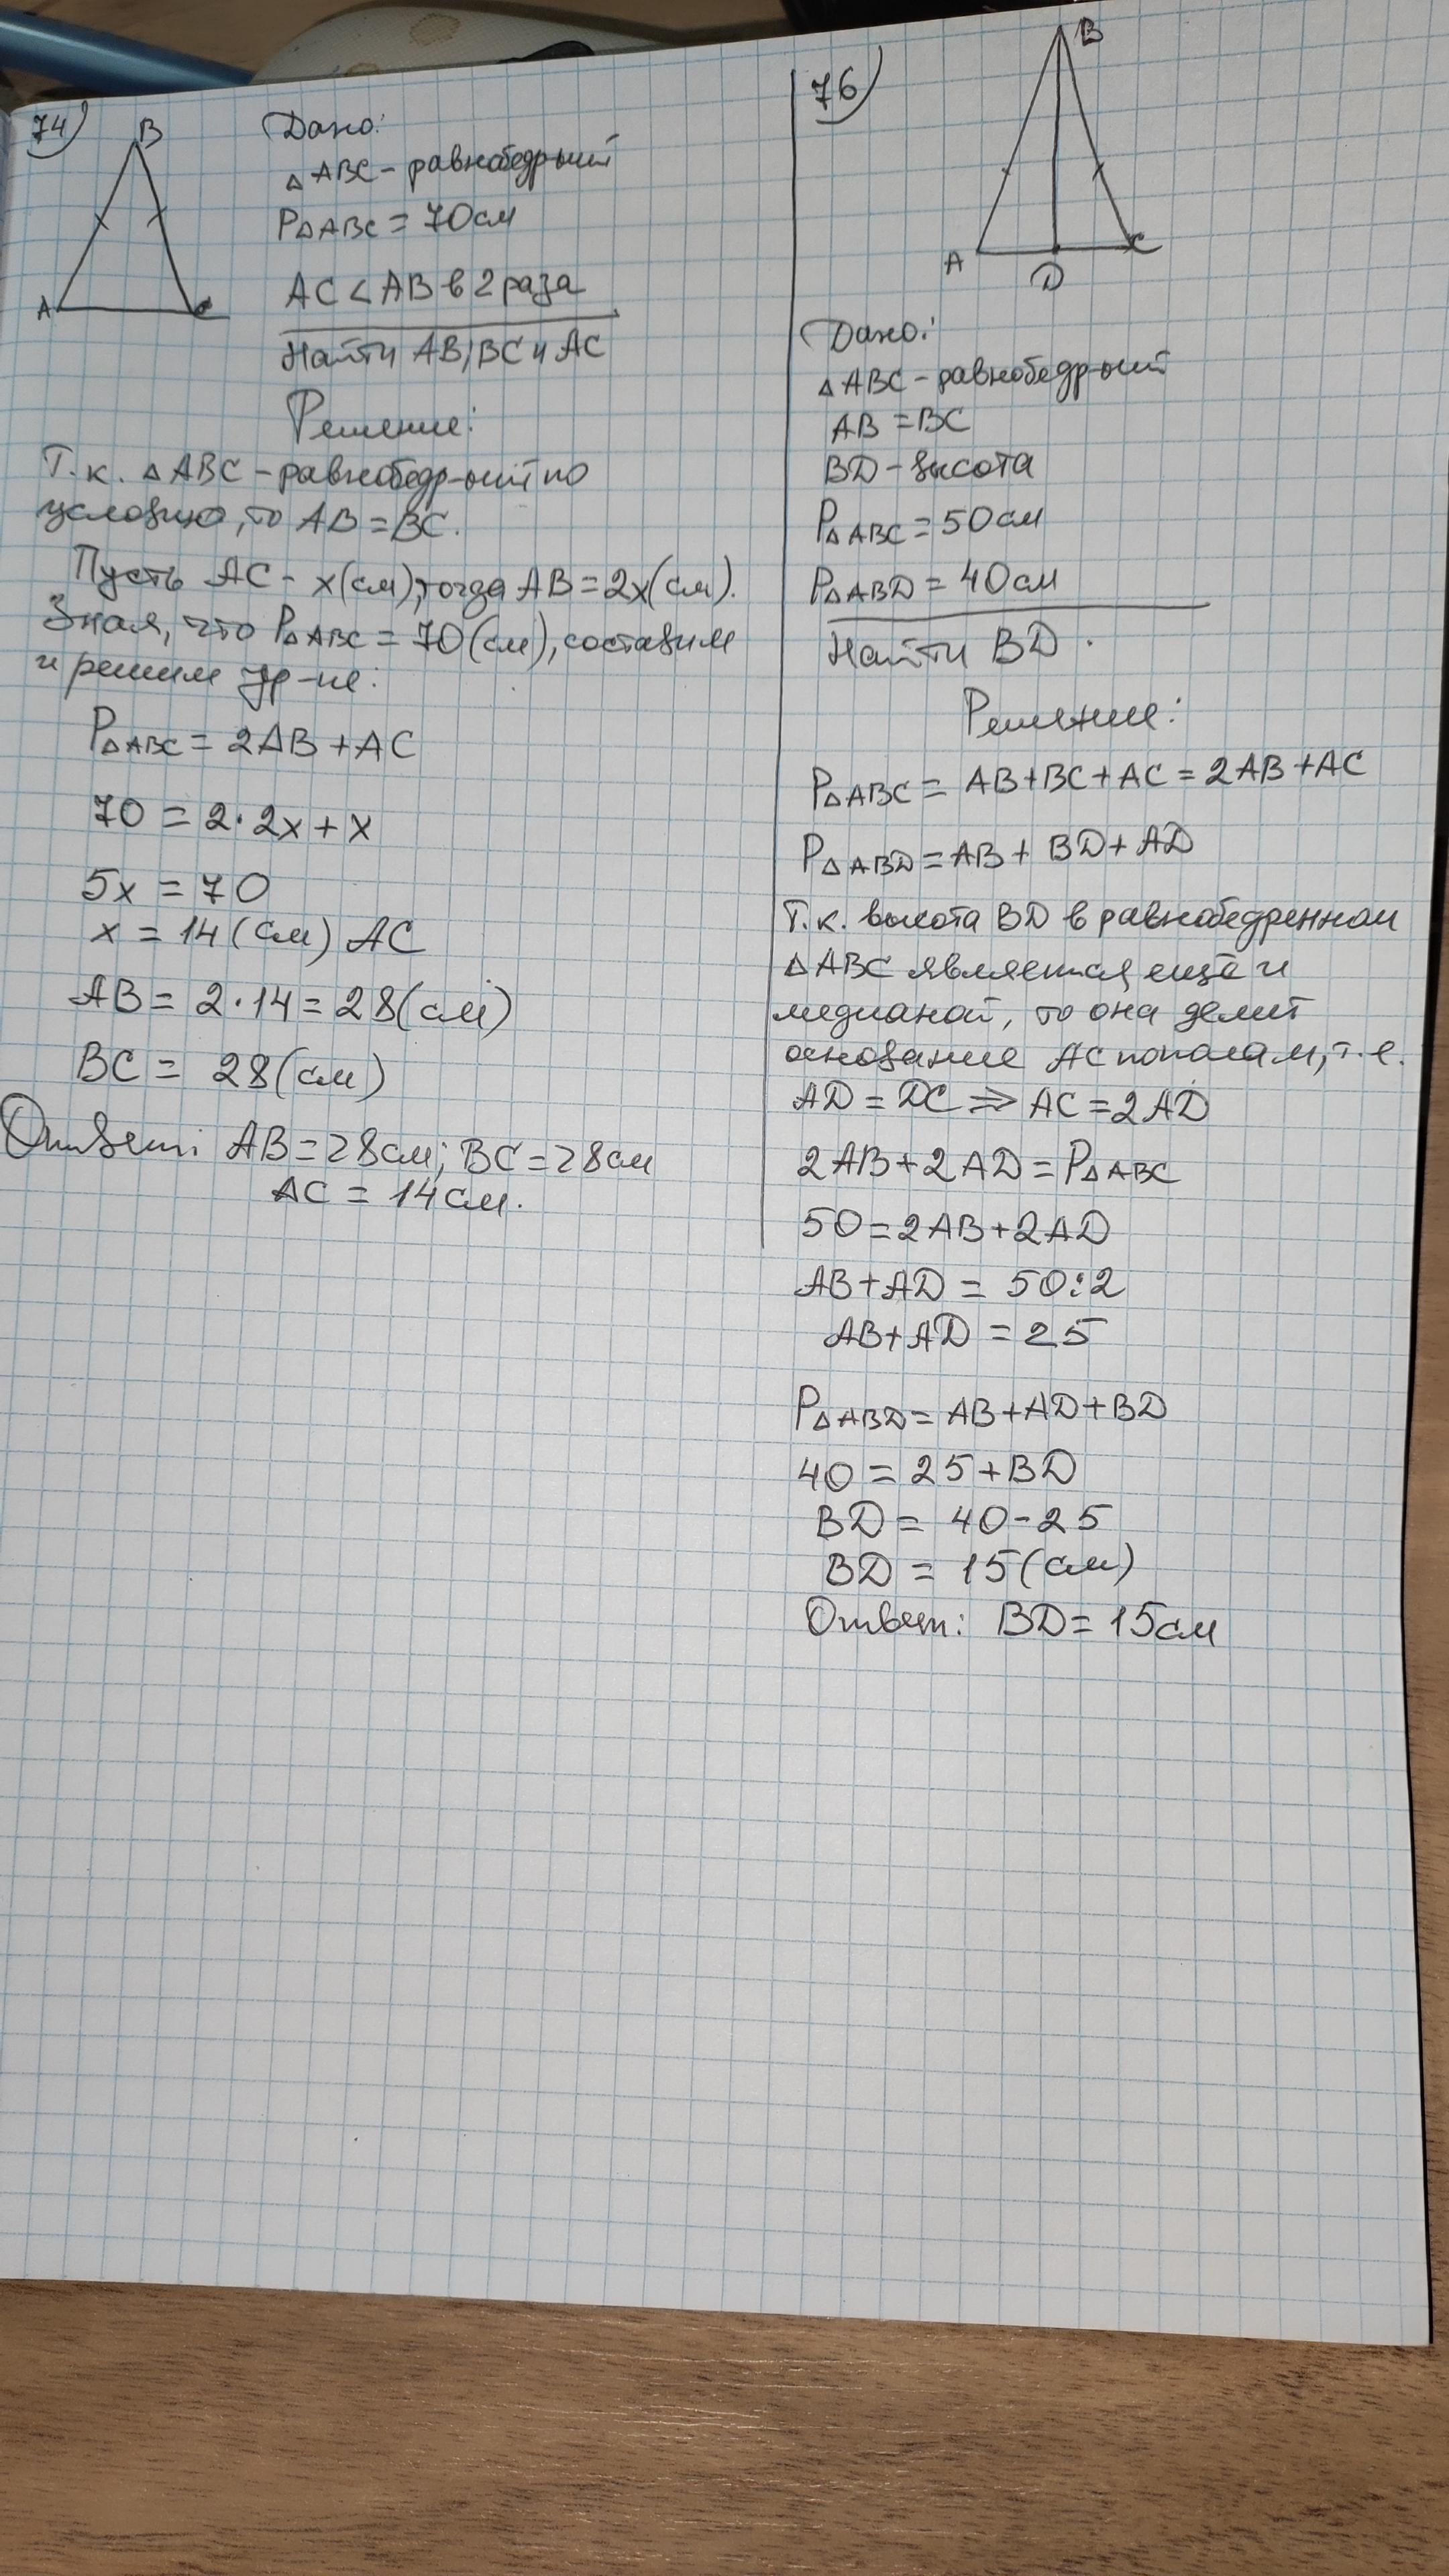 74)
B
A
C
Дано:
△ABC - равнобедр-ый
P△ABC = 70см
AC < AB в 2 раза
Найти AB, BC и AC
Решение:
Т.к. △ABC - равнобедр-ый по
условию, то AB = BC.
Пусть AC - x(см), тогда AB = 2x(см).
Зная, что P△ABC = 70(см), составим
и решим ур-ие:
P△ABC = 2AB + AC
70 = 2·2x + x
5x = 70
x = 14(см) AC
AB = 2·14 = 28(см)
BC = 28(см)
Ответ: AB = 28см; BC = 28см
AC = 14см.
76)
B
A
D
C
Дано:
△ABC - равнобедр-ый
AB = BC
BD - высота
P△ABC = 50см
P△ABD = 40см
Найти BD.
Решение:
P△ABC = AB + BC + AC = 2AB + AC
P△ABD = AB + BD + AD
Т.к. высота BD в равнобедренном
△ABC является ещё и
медианой, то она делит
основание AC пополам, т.е.
AD = DC => AC = 2AD
2AB + 2AD = P△ABC
50 = 2AB + 2AD
AB + AD = 50:2
AB + AD = 25
P△ABD = AB + AD + BD
40 = 25 + BD
BD = 40 - 25
BD = 15(см)
Ответ: BD = 15см